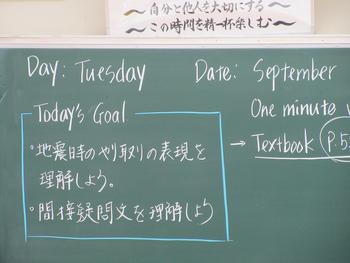 自分と他人を大切にする
〜この時間を精一杯楽しむ〜
Day: Tuesday Date: September
One minute
Today's Goal
・地震時のやり取りの表現を
理解しよう。
・間接疑問文を理解しよう
→ Textbook P.5